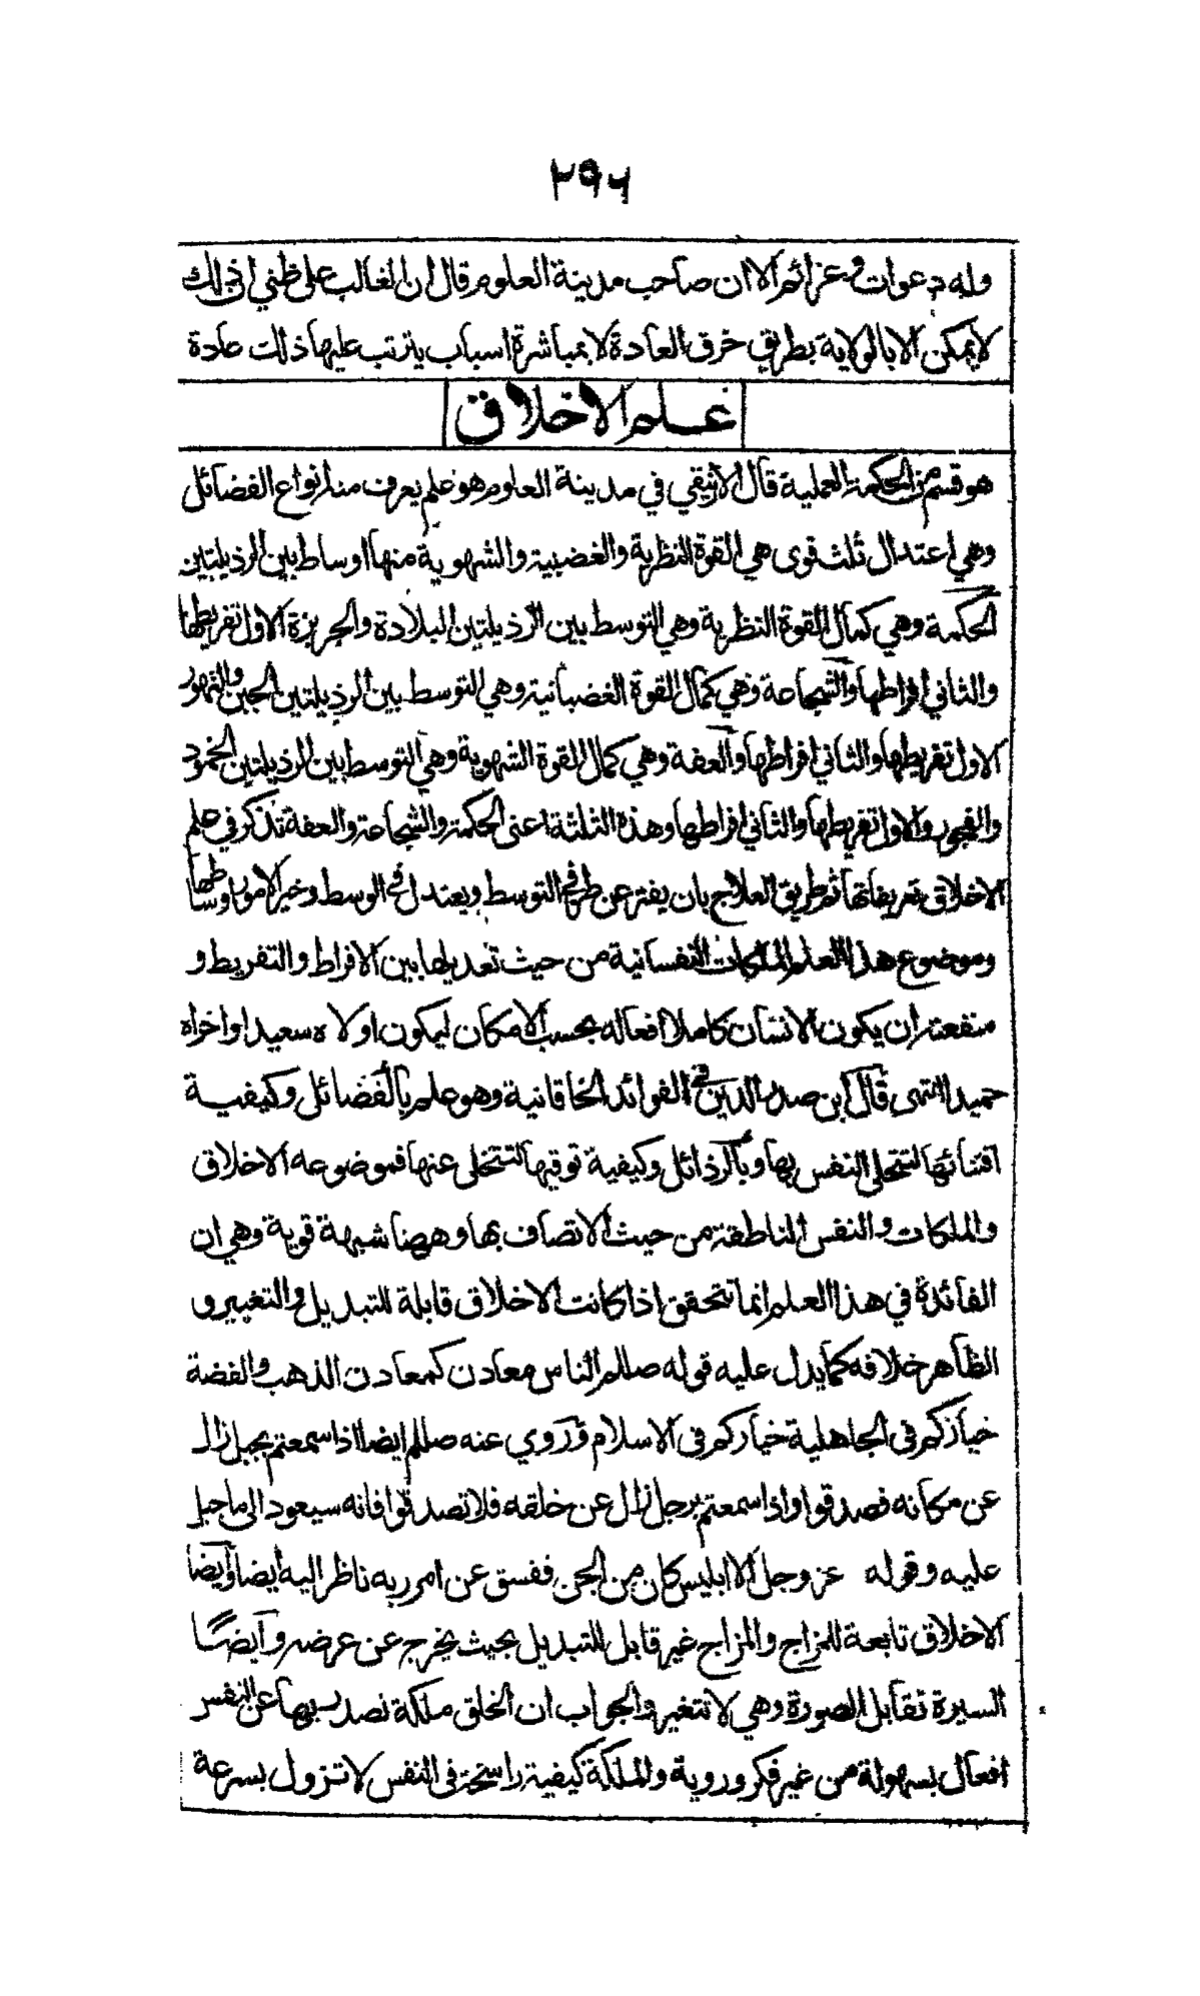 ٢٩٦
وله دعوات وعزائم الا ان صاحب مدينة العلوم قال ان الغالب على ظني ان ذلك
لا يمكن الا بالولاية بطريق خرق العادة لا بمباشرة اسباب يترتب عليها ذلك عادة
علم الاخلاق
هو قسم من الحكمة العملية قال الارنيقي في مدينة العلوم هو علم يعرف منه انواع الفضائل
وهي اعتدال ثلث قوى هي القوة النظرية والغضبية والشهوية منها اوساط بين الرذيلتين
الحكمة وهي كمال القوة النظرية وهي التوسط بين الرذيلتين البلادة والجربزة الاول تفريطها
والثاني افراطها والشجاعة وهي كمال القوة الغضبانية وهي التوسط بين الرذيلتين الجبن والتهور
الاول تفريطها والثاني افراطها والعفة وهي كمال القوة الشهوية وهي التوسط بين الرذيلتين الخمود
والفجور والاول تفريطها والثاني افراطها وهذه الثلثة اعنى الحكمة والشجاعة والعفة تذكر في علم
الاخلاق تعريفاتها ثم طريق العلاج بان يفتر عن طرفي التوسط ويعتدل في الوسط وخير الامور اوساطها
وموضوع هذا العلم الملكات النفسانية من حيث تعديلها بين الافراط والتفريط و
منفعته ان يكون الانسان كاملا افعاله بحسب الامكان ليكون اولاه سعيدا واخراه
حميدا انتهى قال ابن صدر الدين في الفوائد الخاقانية وهو علم بالفضائل وكيفية
اقتنائها لتتحلى النفس بها وبالرذائل وكيفية توقيها لتتخلى عنها فموضوعه الاخلاق
والملكات والنفس الناطقة من حيث الاتصاف بها وههنا شبهة قوية وهي ان
الفائدة في هذا العلم انما تتحقق اذا كانت الاخلاق قابلة للتبديل والتغيير و
الظاهر خلافه كما يدل عليه قوله صللم الناس معادن كمعادن الذهب والفضة
خياركم فى الجاهلية خياركم فى الاسلام وروي عنه صللم ايضا اذا سمعتم بجبل زال
عن مكانه فصدقوا واذا سمعتم برجل زال عن خلقه فلا تصدقوا فانه سيعود الى ما جبل
عليه وقوله عز وجل الا ابليس كان من الجن ففسق عن امر ربه ناظر اليه ايضا وايضا
الاخلاق تابعة للمزاج والمزاج غير قابل للتبديل بحيث يخرج عن عرضه وايضًا
السيرة تقابل الصورة وهي لا تتغير والجواب ان الخلق ملكة تصدر بسببها عن النفس
افعال بسهولة من غير فكر وروية والملكة كيفية راسخة فى النفس لا تزول بسرعة